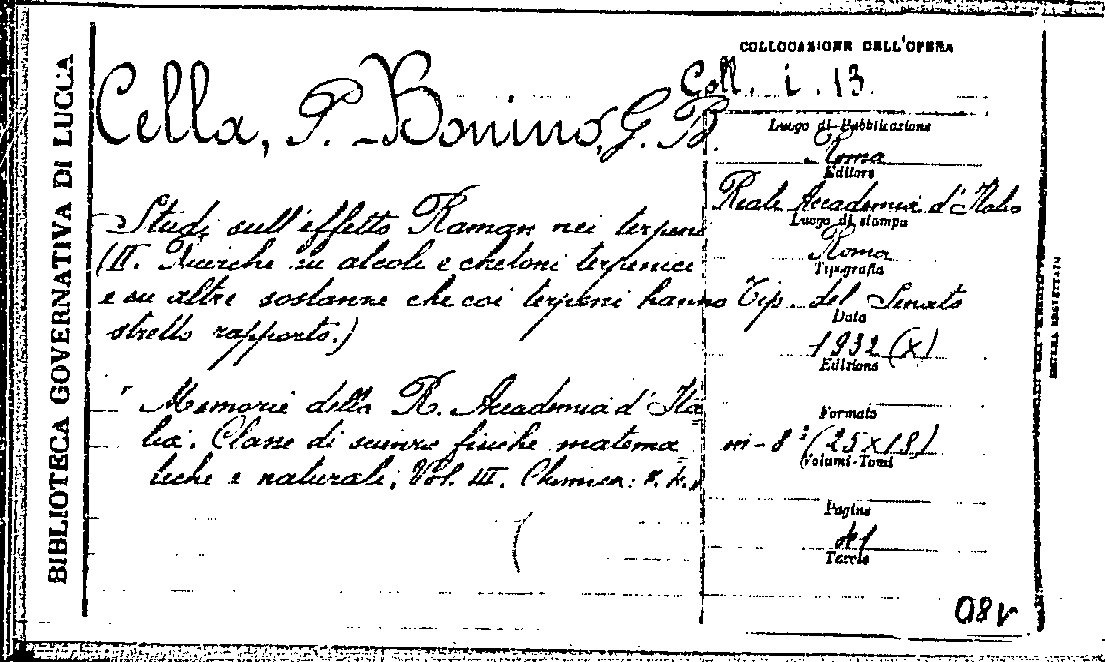 BIBLIOTECA GOVERNATIVA DI LUCCA
Cella, P. - Bonino, G. B.
Studi sull'effetto Raman nei terpeni
(II. Ricerche su alcoli e chetoni terpenici
e su altre sostanze che coi terpeni hanno
stretto rapporto.)
Memorie della R. Accademia d'Ita
lia. Classe di scienze fisiche matema
tiche e naturali, Vol. III. Chimica:
COLLOCAZIONE DELL'OPERA
Coll. i. 13.
Luogo di Pubblicazione
Roma
Editore
Reale Accademia d'Italia
Luogo di stampa
Roma
Tipografia
Tip. del Senato
Data
1932 (X)
Edizione
Formato
in-8° (25x18)
(Volumi-Tomi
Pagine
Tavole